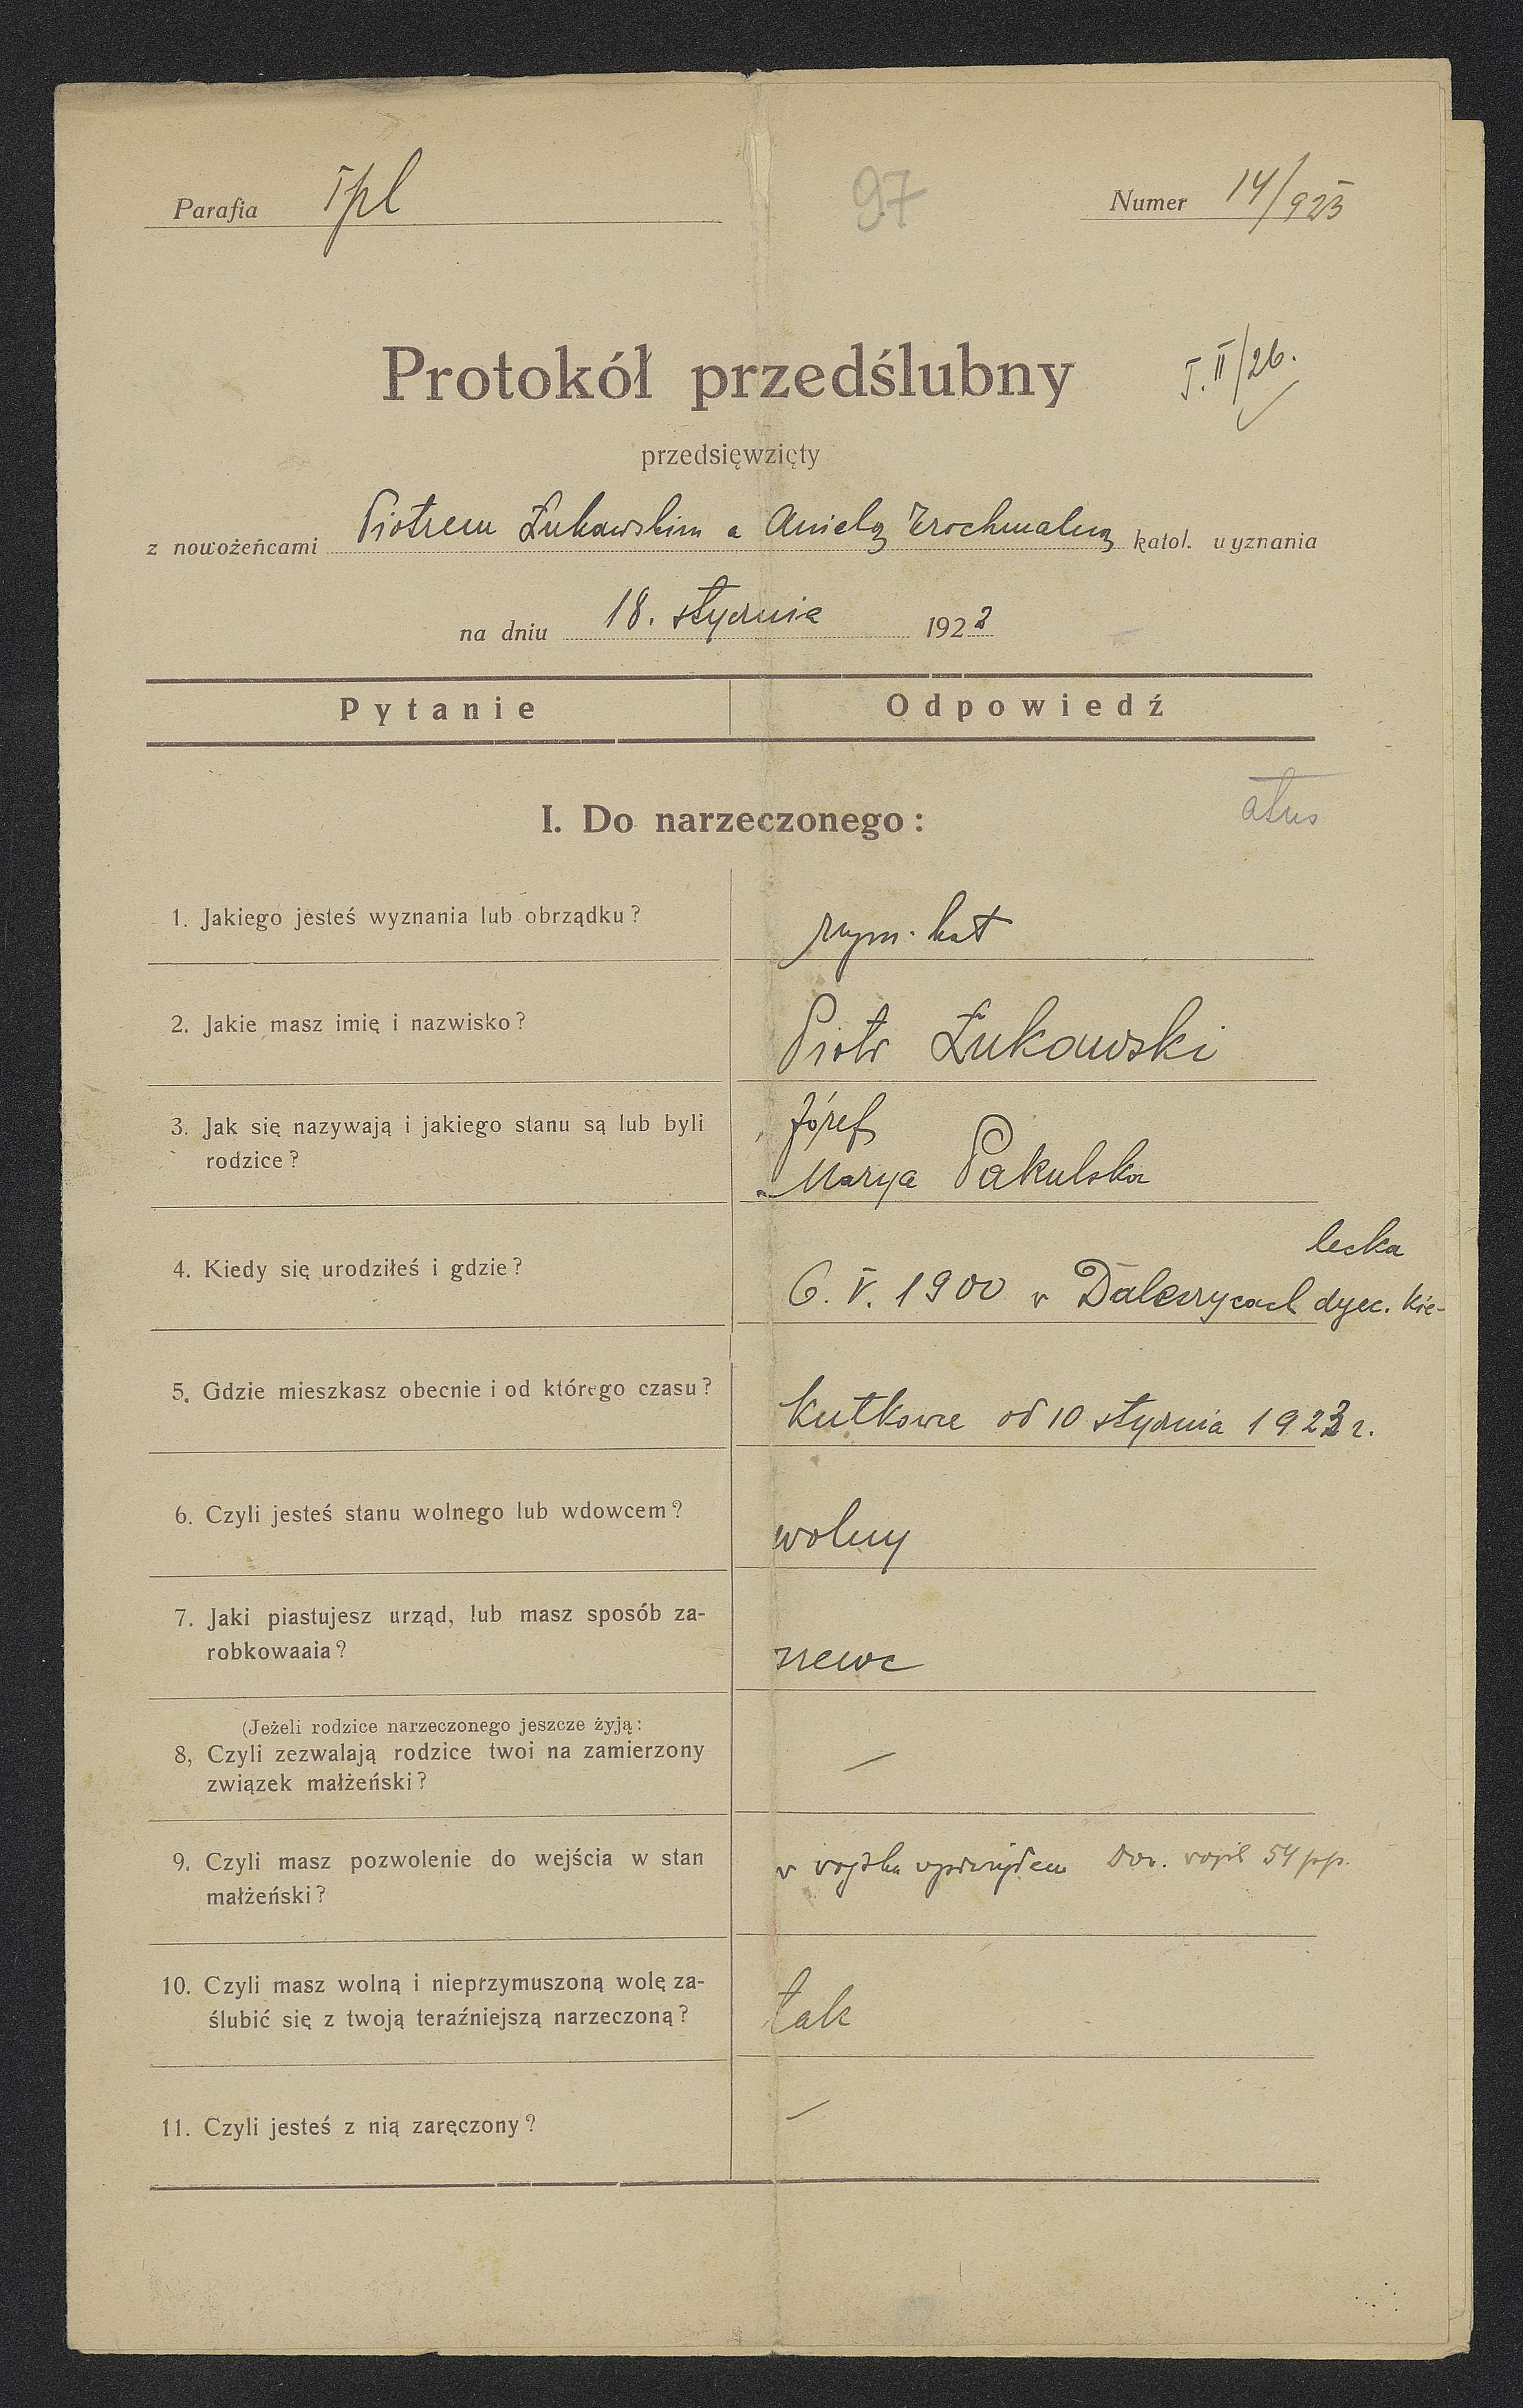 Parafia Tpl
97
Numer 14/923
Protokół przedślubny
T. II/26.
przedsięwzięty
z nowożeńcami Piotrem Żukawskim a Anielą Trochmalną katol. wyznania
na dniu 18. stycznia 1923
Pytanie Odpowiedź
I. Do narzeczonego:
1. Jakiego jesteś wyznania lub obrządku? rzym. kat
2. Jakie masz imię i nazwisko? Piotr Żukowski
3. Jak się nazywają i jakiego stanu są lub byli Józef
rodzice? Marya Pakulska
lecka
4. Kiedy się urodziłeś i gdzie? 6. V. 1900 v Daleszycach dyec. Kie-
5. Gdzie mieszkasz obecnie i od którego czasu? Kutkowce od 10 stycznia 1923 r.
6. Czyli jesteś stanu wolnego lub wdowcem? wolny
7. Jaki piastujesz urząd, lub masz sposób za-
robkowaaia? szewc
(Jeżeli rodzice narzeczonego jeszcze żyją:
8, Czyli zezwalają rodzice twoi na zamierzony —
związek małżeński?
9. Czyli masz pozwolenie do wejścia w stan v vojsku 54 pp.
małżeński?
10. Czyli masz wolną i nieprzymuszoną wolę za-
ślubić się z twoją teraźniejszą narzeczoną? tak
11. Czyli jesteś z nią zaręczony? —